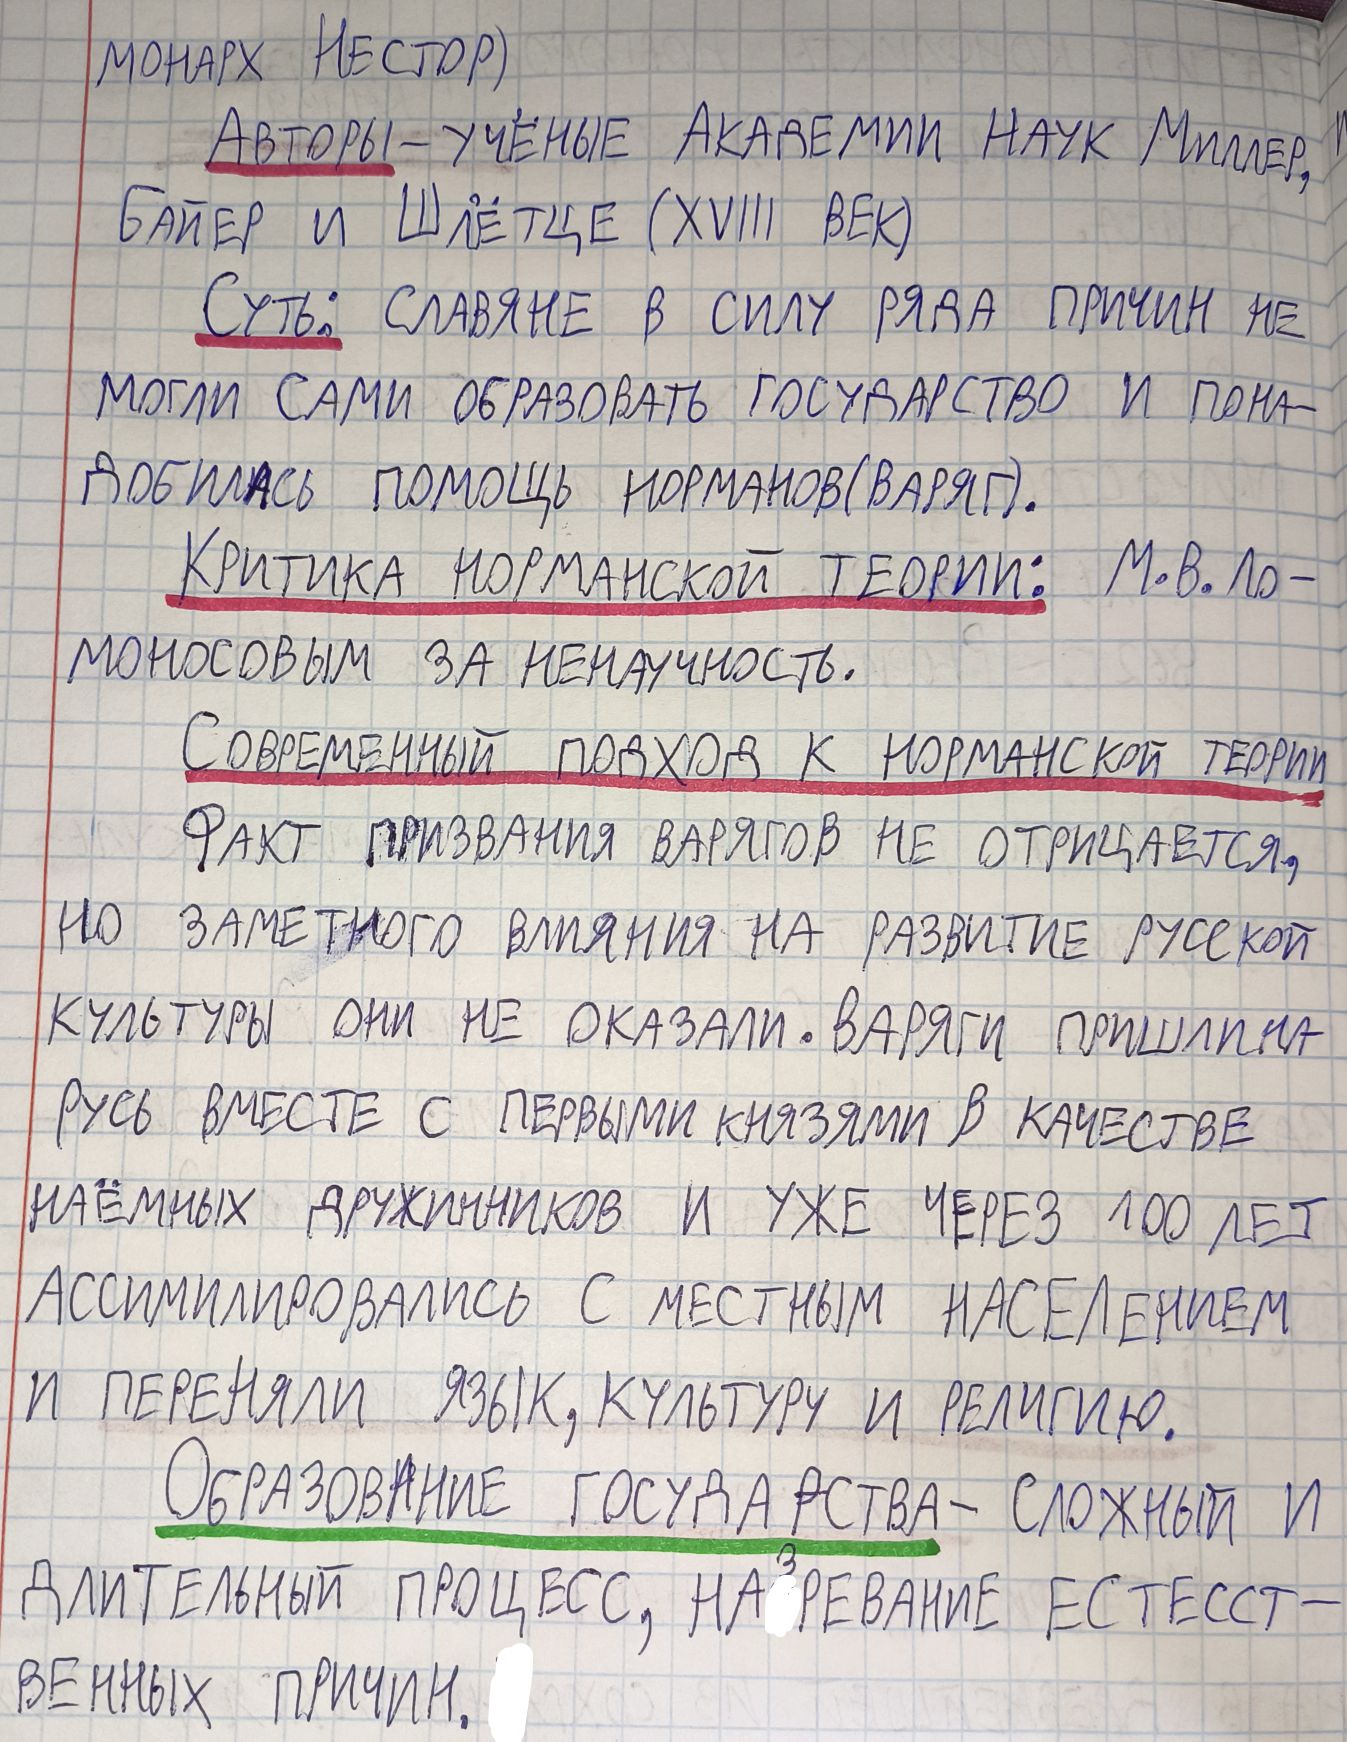 монарх Нестор)
Авторы – учёные Академии Наук Миллер,
Байер и Шлётце (XVIII век)
Суть: славяне в силу ряда причин не
могли сами образовать государство и пона-
добилась помощь норманов(варяг).
Критика норманской теории: М.В. Ло-
моносовым за ненаучность.
Современный подход к норманской теории
Факт призвания варягов не отрицается,
но заметного влияния на развитие русской
культуры они не оказали. Варяги пришли на
русь вместе с первыми князями в качестве
наёмных дружинников и уже через 100 лет
ассимилировались с местным населением
и переняли язык, культуру и религию.
Образование государства – сложный и
длительный процесс, назревание естесст-
венных причин.